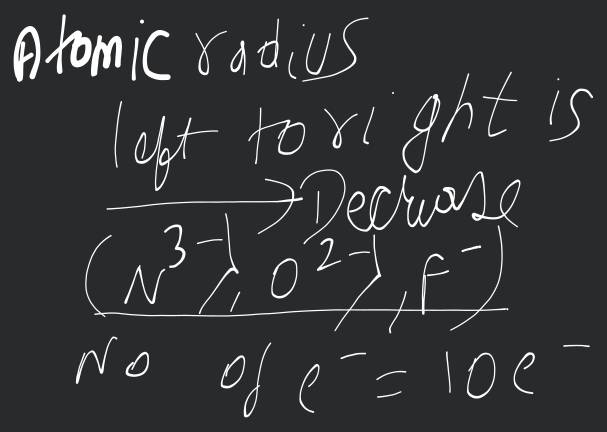 Atomic radius
left to right is
→ Decrease
(N³⁻), O²⁻), F⁻)
No of e⁻ = 10e⁻